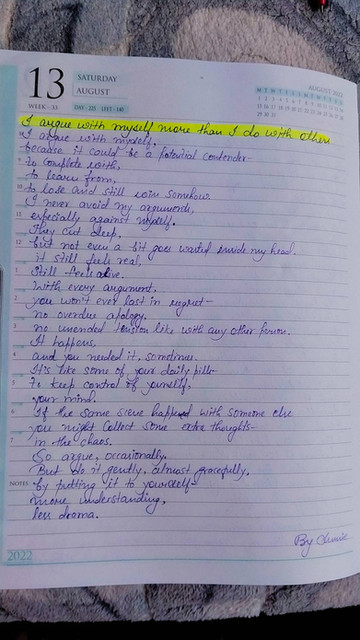 13
SATURDAY
AUGUST
WEEK - 33
DAY - 225 LEFT - 140
AUGUST 2022
I argue with myself more than I do with others
I argue with myself,
because it could be a potential contender-
to complete with,
to learn from,
10 to lose and still win somehow.
I never avoid my arguments,
11 especially against myself.
They cut deep,
12 but not even a bit goes wasted inside my head.
it still feels real,
1 Still feel alive.
With every argument,
2 you won't ever last in regret-
no overdue apology.
3 no unended tension like with any other person.
It happens,
4 and you needed it, sometime.
It's like some of your daily pills-
5 to keep control of yourself,
your mind.
6 If the same happened with someone else
you might collect some extra thoughts-
7 in the chaos.
So argue, occasionally.
But do it gently, almost gracefully,
NOTES by putting it to yourself-
more understanding,
less drama.
By
2022